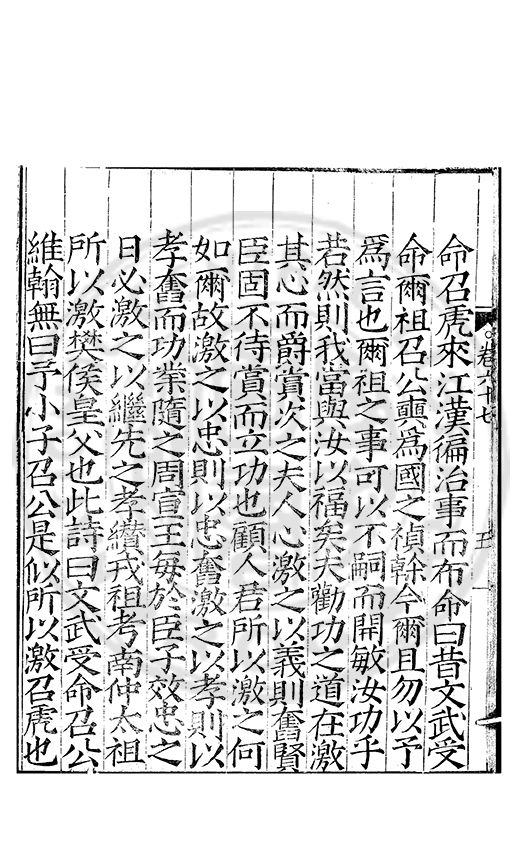 命召虎來江漢徧治事而布命曰昔文武受
命爾祖召公奭為國之禎榦今爾且勿以予
爲言也爾祖之事可以不嗣而開敏汝功乎
若然則我當與汝以福矣夫勸功之道在激
其心而爵賞次之夫人心激之以義則奮賢
臣固不待賞而立功也顧人君所以激之何
如爾故激之以忠則以忠奮激之以孝則以
孝奮而功業隨之周宣王每於臣子效忠之
日必激之以繼先之孝纘戎祖考南仲太祖
所以激樊侯皇父也此詩曰文武受命召公
維翰無曰予小子召公是似所以激召虎也
卷六十七
五